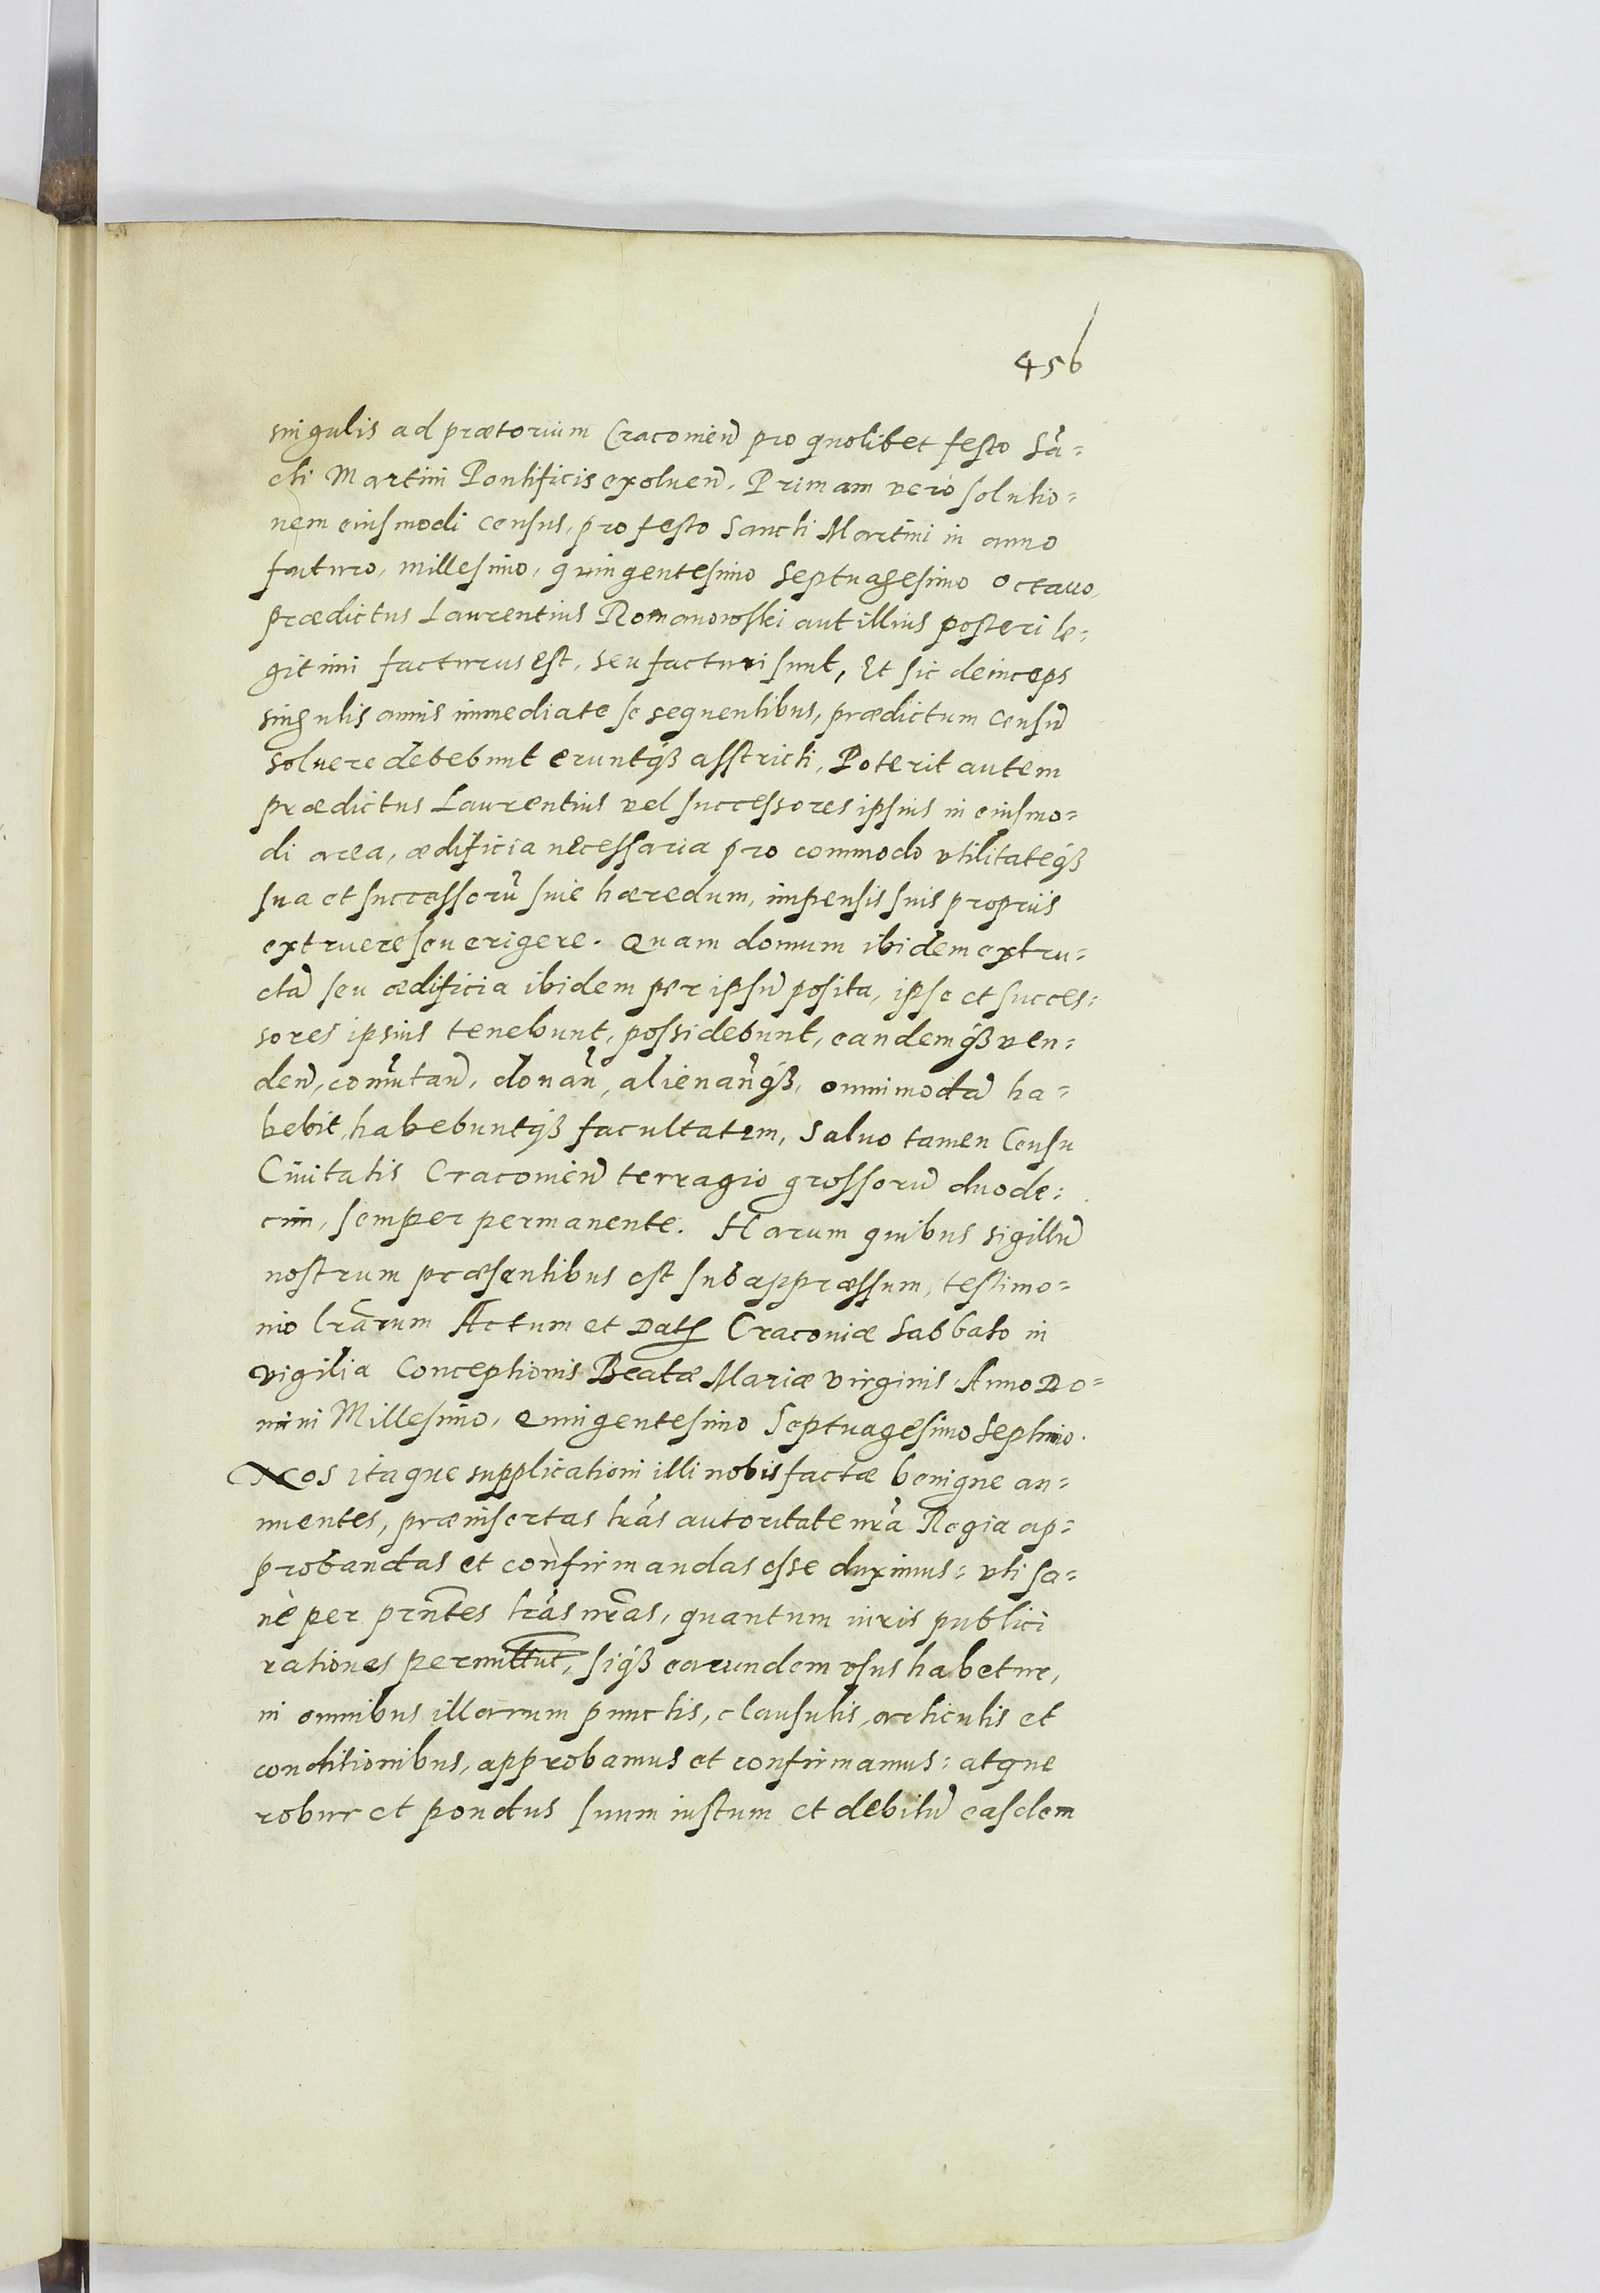 456
singulis ad prætorium Cracovień pro quolibet festo Sã=
cti Martini Pontificis exolueñ. Primam vero solutio=
nem eiusmodi census, pro festo Sancti Martini in anno
futuro, millesimo, quingentesimo septuagesimo octauo,
prædictus Laurentius Romanowski aut illius posteri le=
gitimi facturus est, seu facturi sunt, Et sic deinceps
singulis annis immediate se sequentibus, prædictum censũ
soluere debebunt eruntqȝ asstricti, Poterit autem
prædictus Laurentius vel successores ipsius in eiusmo=
di area, ædificia necessaria pro commodo vtilitateqȝ
sua et successorũ siue hæredum, impensis suis propriis
extruere seu erigere. Quam domum ibidem extru=
ctã seu ædificia ibidem per ipsũ posita, ipse et succes=
sores ipsius tenebunt, possidebunt, eandemqȝ ven=
deñ, comũtañ, donañ, alienañqȝ, omnimodã ha=
bebit, habebuntqȝ facultatem, Saluo tamen Censu
Ciuitatis Cracovień terragio grossorũ duode=
cim, semper permanente. Harum quibus sigillũ
nostrum præsentibus est subappræssum, testimo=
nio lr̃arum Actum et Datȝ Cracoviæ Sabbato in
vigilia Conceptionis Beatæ Mariæ virginis Anno Do=
mini Millesimo, Quingentesimo Septuagesimo Septimo.
Nos itaque supplicationi illi nobis factæ benigne an=
nuentes, præinsertas lr̃as autoritate nr̃a Regia ap=
probandas et confirmandas esse duximus: vti sa=
nè per prñtes lr̃as nr̃as, quantum iuris publici
rationes permittut, siqȝ earundem vsus habetur,
in omnibus illarum punctis, clausulis, articulis et
conditionibus, approbamus et confirmamus: atque
robur et pondus suum iustum et debitũ easdem